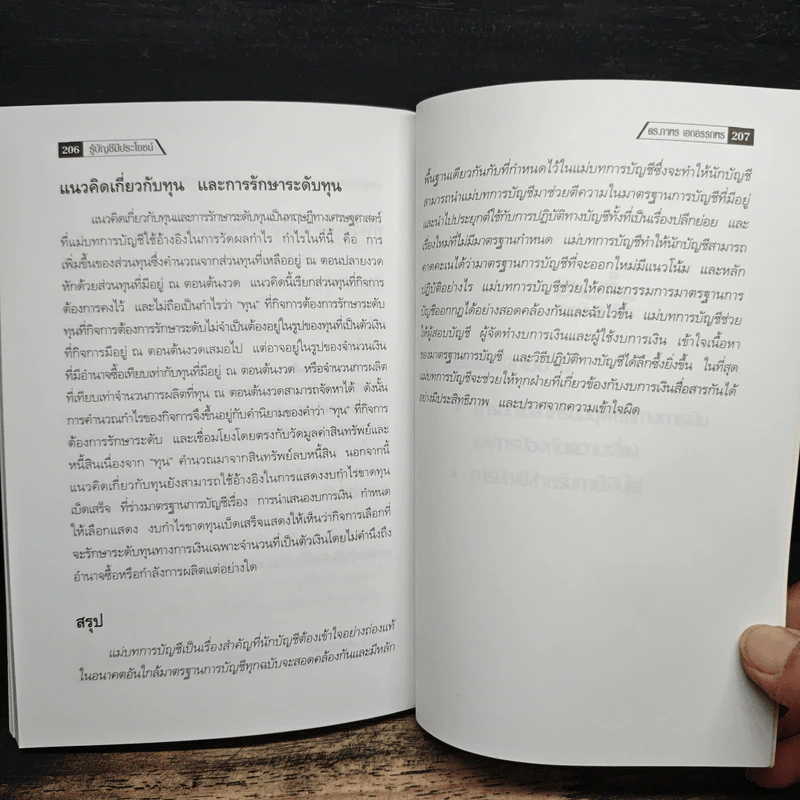 206 รู้บัญชีมีประโยชน์
แนวคิดเกี่ยวกับทุน และการรักษาระดับทุน
แนวคิดเกี่ยวกับทุนและการรักษาระดับทุนเป็นทฤษฎีทางเศรษฐศาสตร์
ที่แม่บทการบัญชีใช้อ้างอิงในการวัดผลกำไร กำไรในที่นี้ คือ การ
เพิ่มขึ้นของส่วนทุนซึ่งคำนวณจากส่วนทุนที่เหลืออยู่ ณ ตอนปลายงวด
หักด้วยส่วนทุนที่มีอยู่ ณ ตอนต้นงวด แนวคิดนี้เรียกส่วนทุนที่กิจการ
ต้องการคงไว้ และไม่ถือเป็นกำไรว่า “ทุน” ที่กิจการต้องการรักษาระดับ
ทุนที่กิจการต้องการรักษาระดับไม่จำเป็นต้องอยู่ในรูปของทุนที่เป็นตัวเงิน
ที่กิจการมีอยู่ ณ ตอนต้นงวดเสมอไป แต่อาจอยู่ในรูปของจำนวนเงิน
ที่มีอำนาจซื้อเทียบเท่ากับทุนที่มีอยู่ ณ ตอนต้นงวด หรือจำนวนการผลิต
ที่เทียบเท่าจำนวนการผลิตที่ทุน ณ ตอนต้นงวดสามารถจัดหาได้ ดังนั้น
การคำนวณกำไรของกิจการจึงขึ้นอยู่กับคำนิยามของคำว่า “ทุน” ที่กิจการ
ต้องการรักษาระดับ และเชื่อมโยงโดยตรงกับวัดมูลค่าสินทรัพย์และ
หนี้สินเนื่องจาก “ทุน” คำนวณมาจากสินทรัพย์ลบหนี้สิน นอกจากนี้
แนวคิดเกี่ยวกับทุนยังสามารถใช้อ้างอิงในการแสดงงบกำไรขาดทุน
เบ็ดเสร็จ ที่ร่างมาตรฐานการบัญชีเรื่อง การนำเสนองบการเงิน กำหนด
ให้เลือกแสดง งบกำไรขาดทุนเบ็ดเสร็จแสดงให้เห็นว่ากิจการเลือกที่
จะรักษาระดับทุนทางการเงินเฉพาะจำนวนที่เป็นตัวเงินโดยไม่คำนึงถึง
อำนาจซื้อหรือกำลังการผลิตแต่อย่างใด
สรุป
แม่บทการบัญชีเป็นเรื่องสำคัญที่นักบัญชีต้องเข้าใจอย่างถ่องแท้
ในอนาคตอันใกล้มาตรฐานการบัญชีทุกฉบับจะสอดคล้องกันและมีหลัก
ดร.ภาพร เอกอรรถพร 207
พื้นฐานเดียวกันกับที่กำหนดไว้ในแม่บทการบัญชีซึ่งจะทำให้นักบัญชี
สามารถนำแม่บทการบัญชีมาช่วยตีความในมาตรฐานการบัญชีที่มีอยู่
และนำไปประยุกต์ใช้กับการปฏิบัติทางบัญชีทั้งที่เป็นเรื่องปลีกย่อย และ
เรื่องใหม่ที่ไม่มีมาตรฐานกำหนด แม่บทการบัญชีทำให้นักบัญชีสามารถ
คาดคะเนได้ว่ามาตรฐานการบัญชีที่จะออกใหม่มีแนวโน้ม และหลัก
ปฏิบัติอย่างไร แม่บทการบัญชีช่วยให้คณะกรรมการมาตรฐานการ
บัญชีออกกฎได้อย่างสอดคล้องกันและฉับไวขึ้น แม่บทการบัญชีช่วย
ให้ผู้สอบบัญชี ผู้จัดทำงบการเงินและผู้ใช้งบการเงิน เข้าใจเนื้อหา
ของมาตรฐานการบัญชี และวิธีปฏิบัติทางบัญชีได้ลึกซึ้งยิ่งขึ้น ในที่สุด
แม่บทการบัญชีจะช่วยให้ทุกฝ่ายที่เกี่ยวข้องกับงบการเงินสื่อสารกันได้
อย่างมีประสิทธิภาพ และปราศจากความเข้าใจผิด